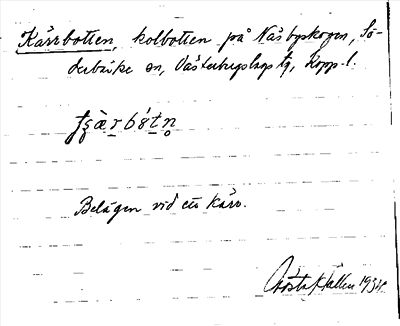 Kärrbotten, kolbotten på Näsbyskogen, Sö-
derbärke sn, Västerbergslags tg, Kopp. l.
Beläget vid ett kärr.
Gösta Hallen